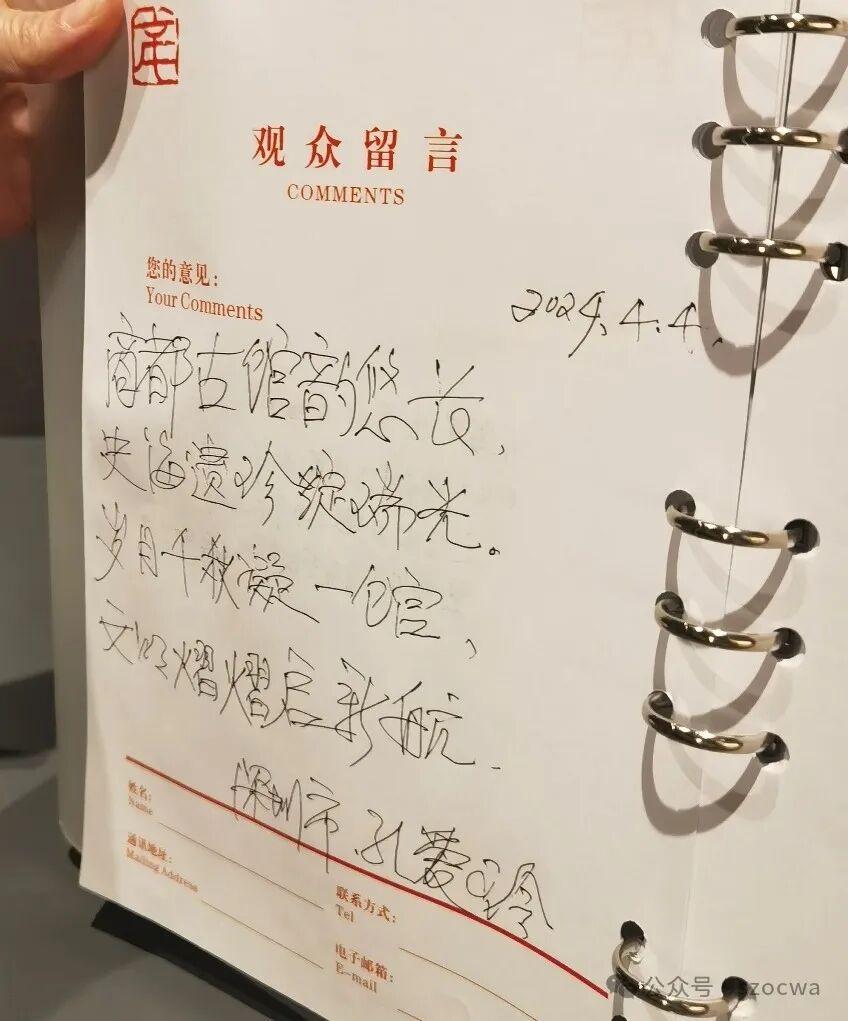 观众留言
COMMENTS
您的意见：
Your Comments
2024.4.4.
商都古馆韵悠长，
史海遗珍绽瑞光。
岁月千秋凝一馆，
文明熠熠启新航.
深圳市.孔爱玲
姓名：
Name
通讯地址：
Mailing Address
联系方式：
Tel
电子邮箱：
E-mail
公众号
zocwa